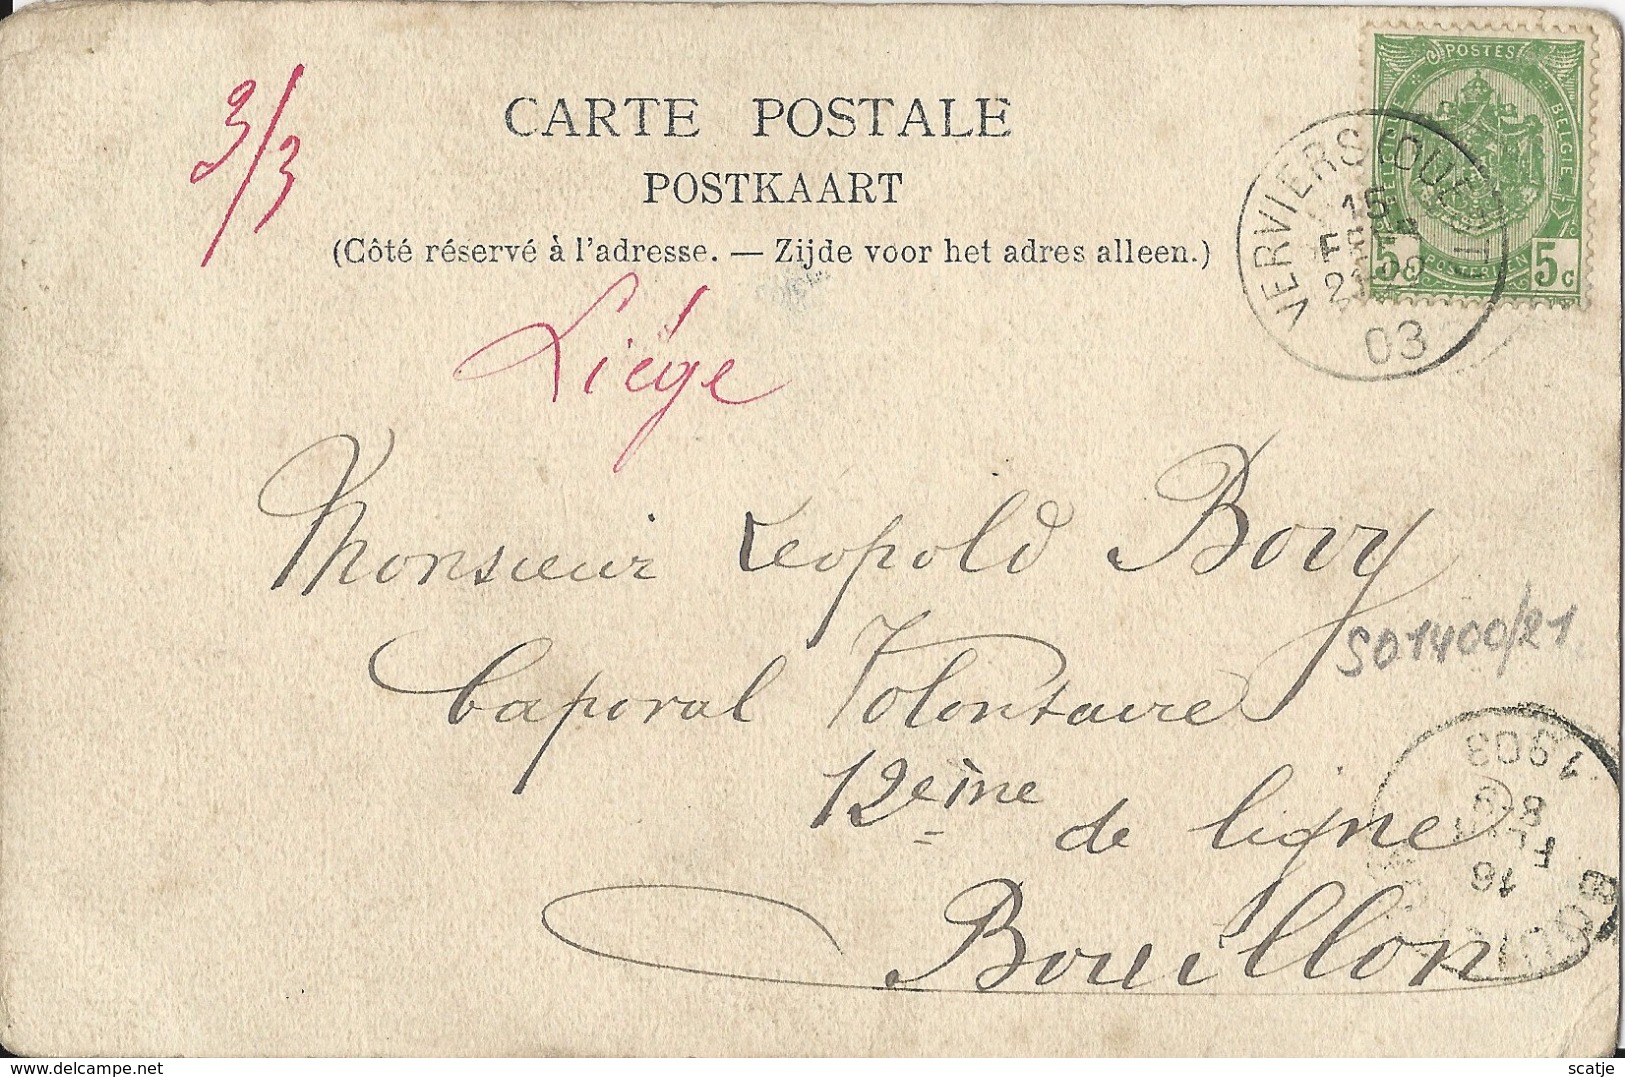 3/3
CARTE POSTALE
POSTKAART
(Côté réservé à l'adresse. — Zijde voor het adres alleen.)
POSTES
BELGIE
5 5c
VERVIERS (OUEST)
15
03
Liége
Monsieur Leopold Bovy
Caporal Volontaire
12eme de ligne
Bouillon
SD1400/21.
1903
8-9
16
delcampe.net
scatje